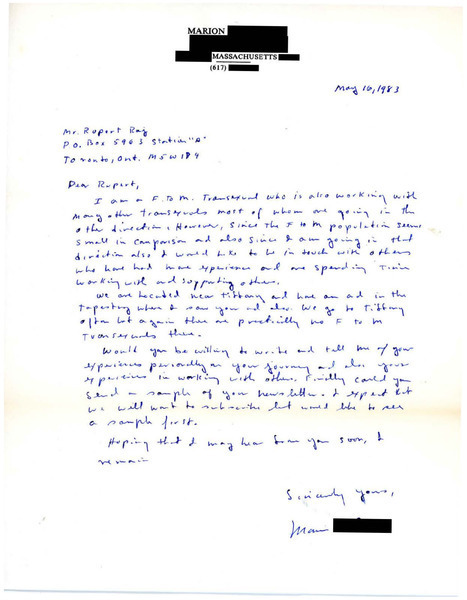 MARION
MASSACHUSETTS
(617)
May 16, 1983
Mr. Rupert Raj
P.O. Box 5963 Station "A"
Toronto, Ont. M5W 1P4
Dear Rupert,
I am a F. to M. Transexual who is also working with
many other Transexuals most of whom are going in the
other direction. However, since the F to M population seems
small in comparison and also since I am going in that
direction also I would like to be in touch with others
who have had more experience and are spending time
working with and supporting others.
We are located near Tiffany and have an ad in the
Tapestry where I saw your ad also. We go to Tiffany
often but again there are practically no F to M
Transexuals there.
Would you be willing to write and tell me of your
experiences personally on your journey and also your
experiences in working with others. Finally could you
send a sample of your newsletter. I expect that
we will want to subscribe but would like to see
a sample first.
Hoping that I may hear from you soon, I
remain
Sincerely yours,